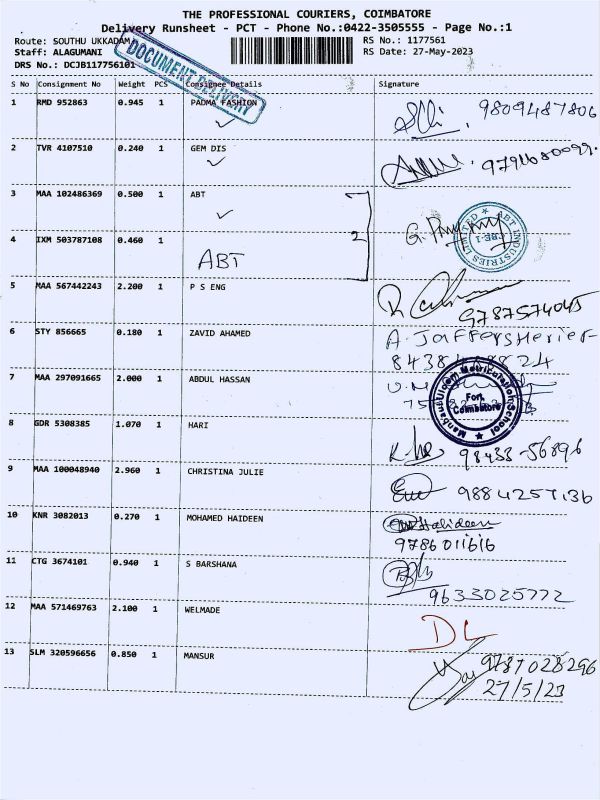 THE PROFESSIONAL COURIERS, COIMBATORE
Delivery Runsheet - PCT - Phone No.:0422-3505555 - Page No.:1
Route: SOUTHU UKKADAM
Staff: ALAGUMANI
DRS No.: DCJB117756101
DOCUMENT DELIVERY
RS No.: 1177561
RS Date: 27-May-2023
S No Consignment No Weight PCS Consignee Details Signature
1 RMD 952863 0.945 1 PADMA FASHION 9809487806
2 TVR 4107510 0.240 1 GEM DIS
3 MAA 102486369 0.500 1 ABT
2
ABT INDUSTRIES LIMITED
CBE-1
4 IXM 503787108 0.460 1
ABT
5 MAA 567442243 2.200 1 P S ENG
9787574045
6 STY 856665 0.180 1 ZAVID AHAMED
7 MAA 297091665 2.000 1 ABDUL HASSAN
Manbaul Uloom Matriculation School
Fort,
Coimbatore
8 GDR 5308385 1.070 1 HARI
98433-56896
9 MAA 100048940 2.960 1 CHRISTINA JULIE
9884257136
10 KNR 3082013 0.270 1 MOHAMED HAIDEEN
9786011616
11 CTG 3674101 0.940 1 S BARSHANA
9633025772
12 MAA 571469763 2.100 1 WELMADE
DL
13 SLM 320596656 0.850 1 MANSUR 9787028296
27/5/23